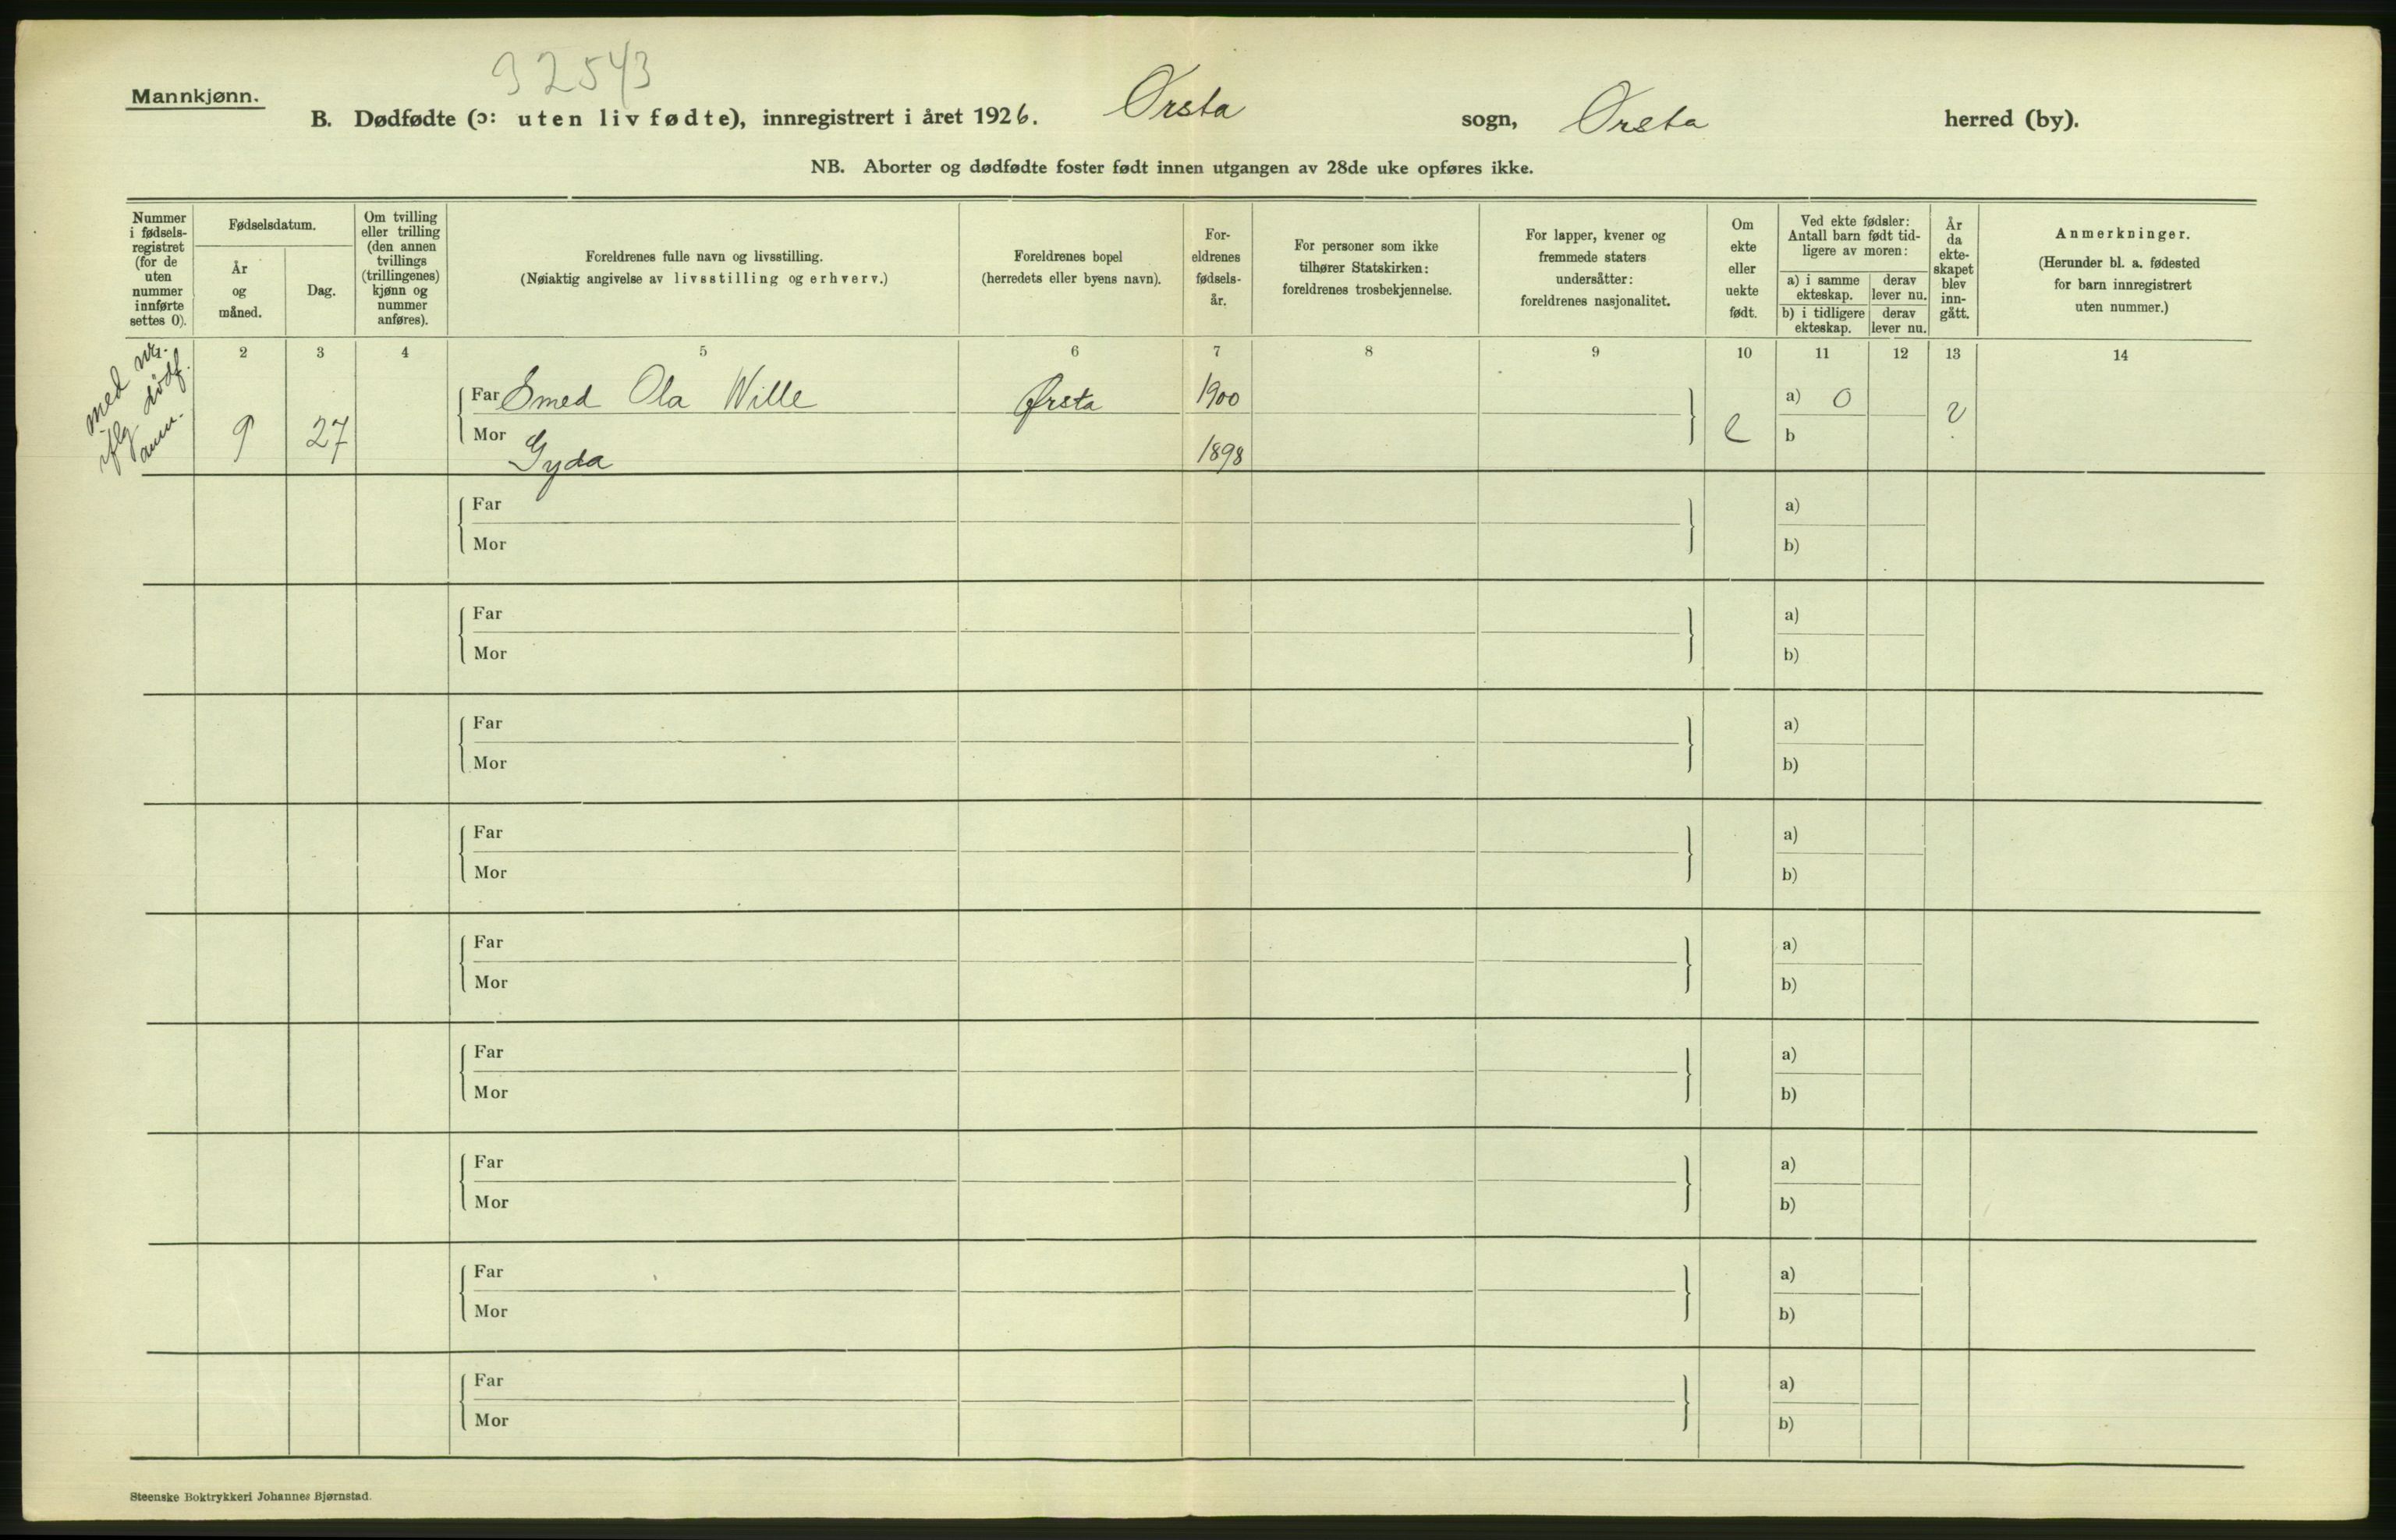 32543
Mannkjønn.
B. Dødfødte (ɔ: uten liv fødte), innregistrert i året 1926. Ørsta sogn, Ørsta herred (by).
NB. Aborter og dødfødte foster født innen utgangen av 28de uke opføres ikke.
Nummer i fødsels-registret (for de uten nummer innførte settes 0).
Fødselsdatum.
År og måned.
Dag.
Om tvilling eller trilling (den annen tvillings (trillingenes) kjønn og nummer anføres).
Foreldrenes fulle navn og livsstilling.
(Nøiaktig angivelse av livsstilling og erhverv.)
Foreldrenes bopel
(herredets eller byens navn).
For-eldrenes fødsels-år.
For personer som ikke tilhører Statskirken: foreldrenes trosbekjennelse.
For lapper, kvener og fremmede staters undersåtter: foreldrenes nasjonalitet.
Om ekte eller uekte født.
Ved ekte fødsler: Antall barn født tid-ligere av moren:
a) i samme ekteskap.
derav lever nu.
b) i tidligere ekteskap.
derav lever nu.
År da ekte-skapet blev inn-gått.
Anmerkninger.
(Herunder bl. a. fødested for barn innregistrert uten nummer.)
2 3 4 5 6 7 8 9 10 11 12 13 14
med nr. dødf.
Far Smed Ola Wille Ørsta 1900 a) 0
9 27 Mor Gyda 1898 e b ?
Far a)
Mor b)
Far a)
Mor b)
Far a)
Mor b)
Far a)
Mor b)
Far a)
Mor b)
Far a)
Mor b)
Far a)
Mor b)
Far a)
Mor b)
Far a)
Mor b)
Steenske Boktrykkeri Johannes Bjørnstad.